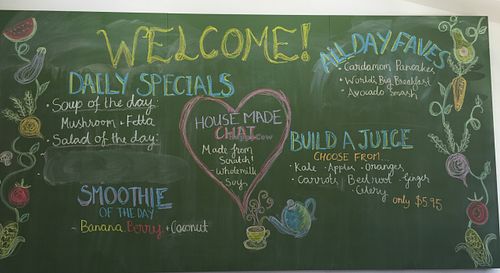 WELCOME!
DAILY SPECIALS
• Soup of the day:
Mushroom + Fetta
• Salad of the day:
SMOOTHIE
OF THE DAY
- Banana, Berry, + Coconut
HOUSE MADE
CHAI
Made from
Scratch!
• Wholemilk
Soy
ALL DAY FAVES
• Cardamon Pancakes
• World's Big Breakfast
• Avocado Smash
BUILD A JUICE
CHOOSE FROM...
• Kale • Apples • Oranges
• Carrots • Beetroot • Ginger
• Celery
only $5.95
HappyCow